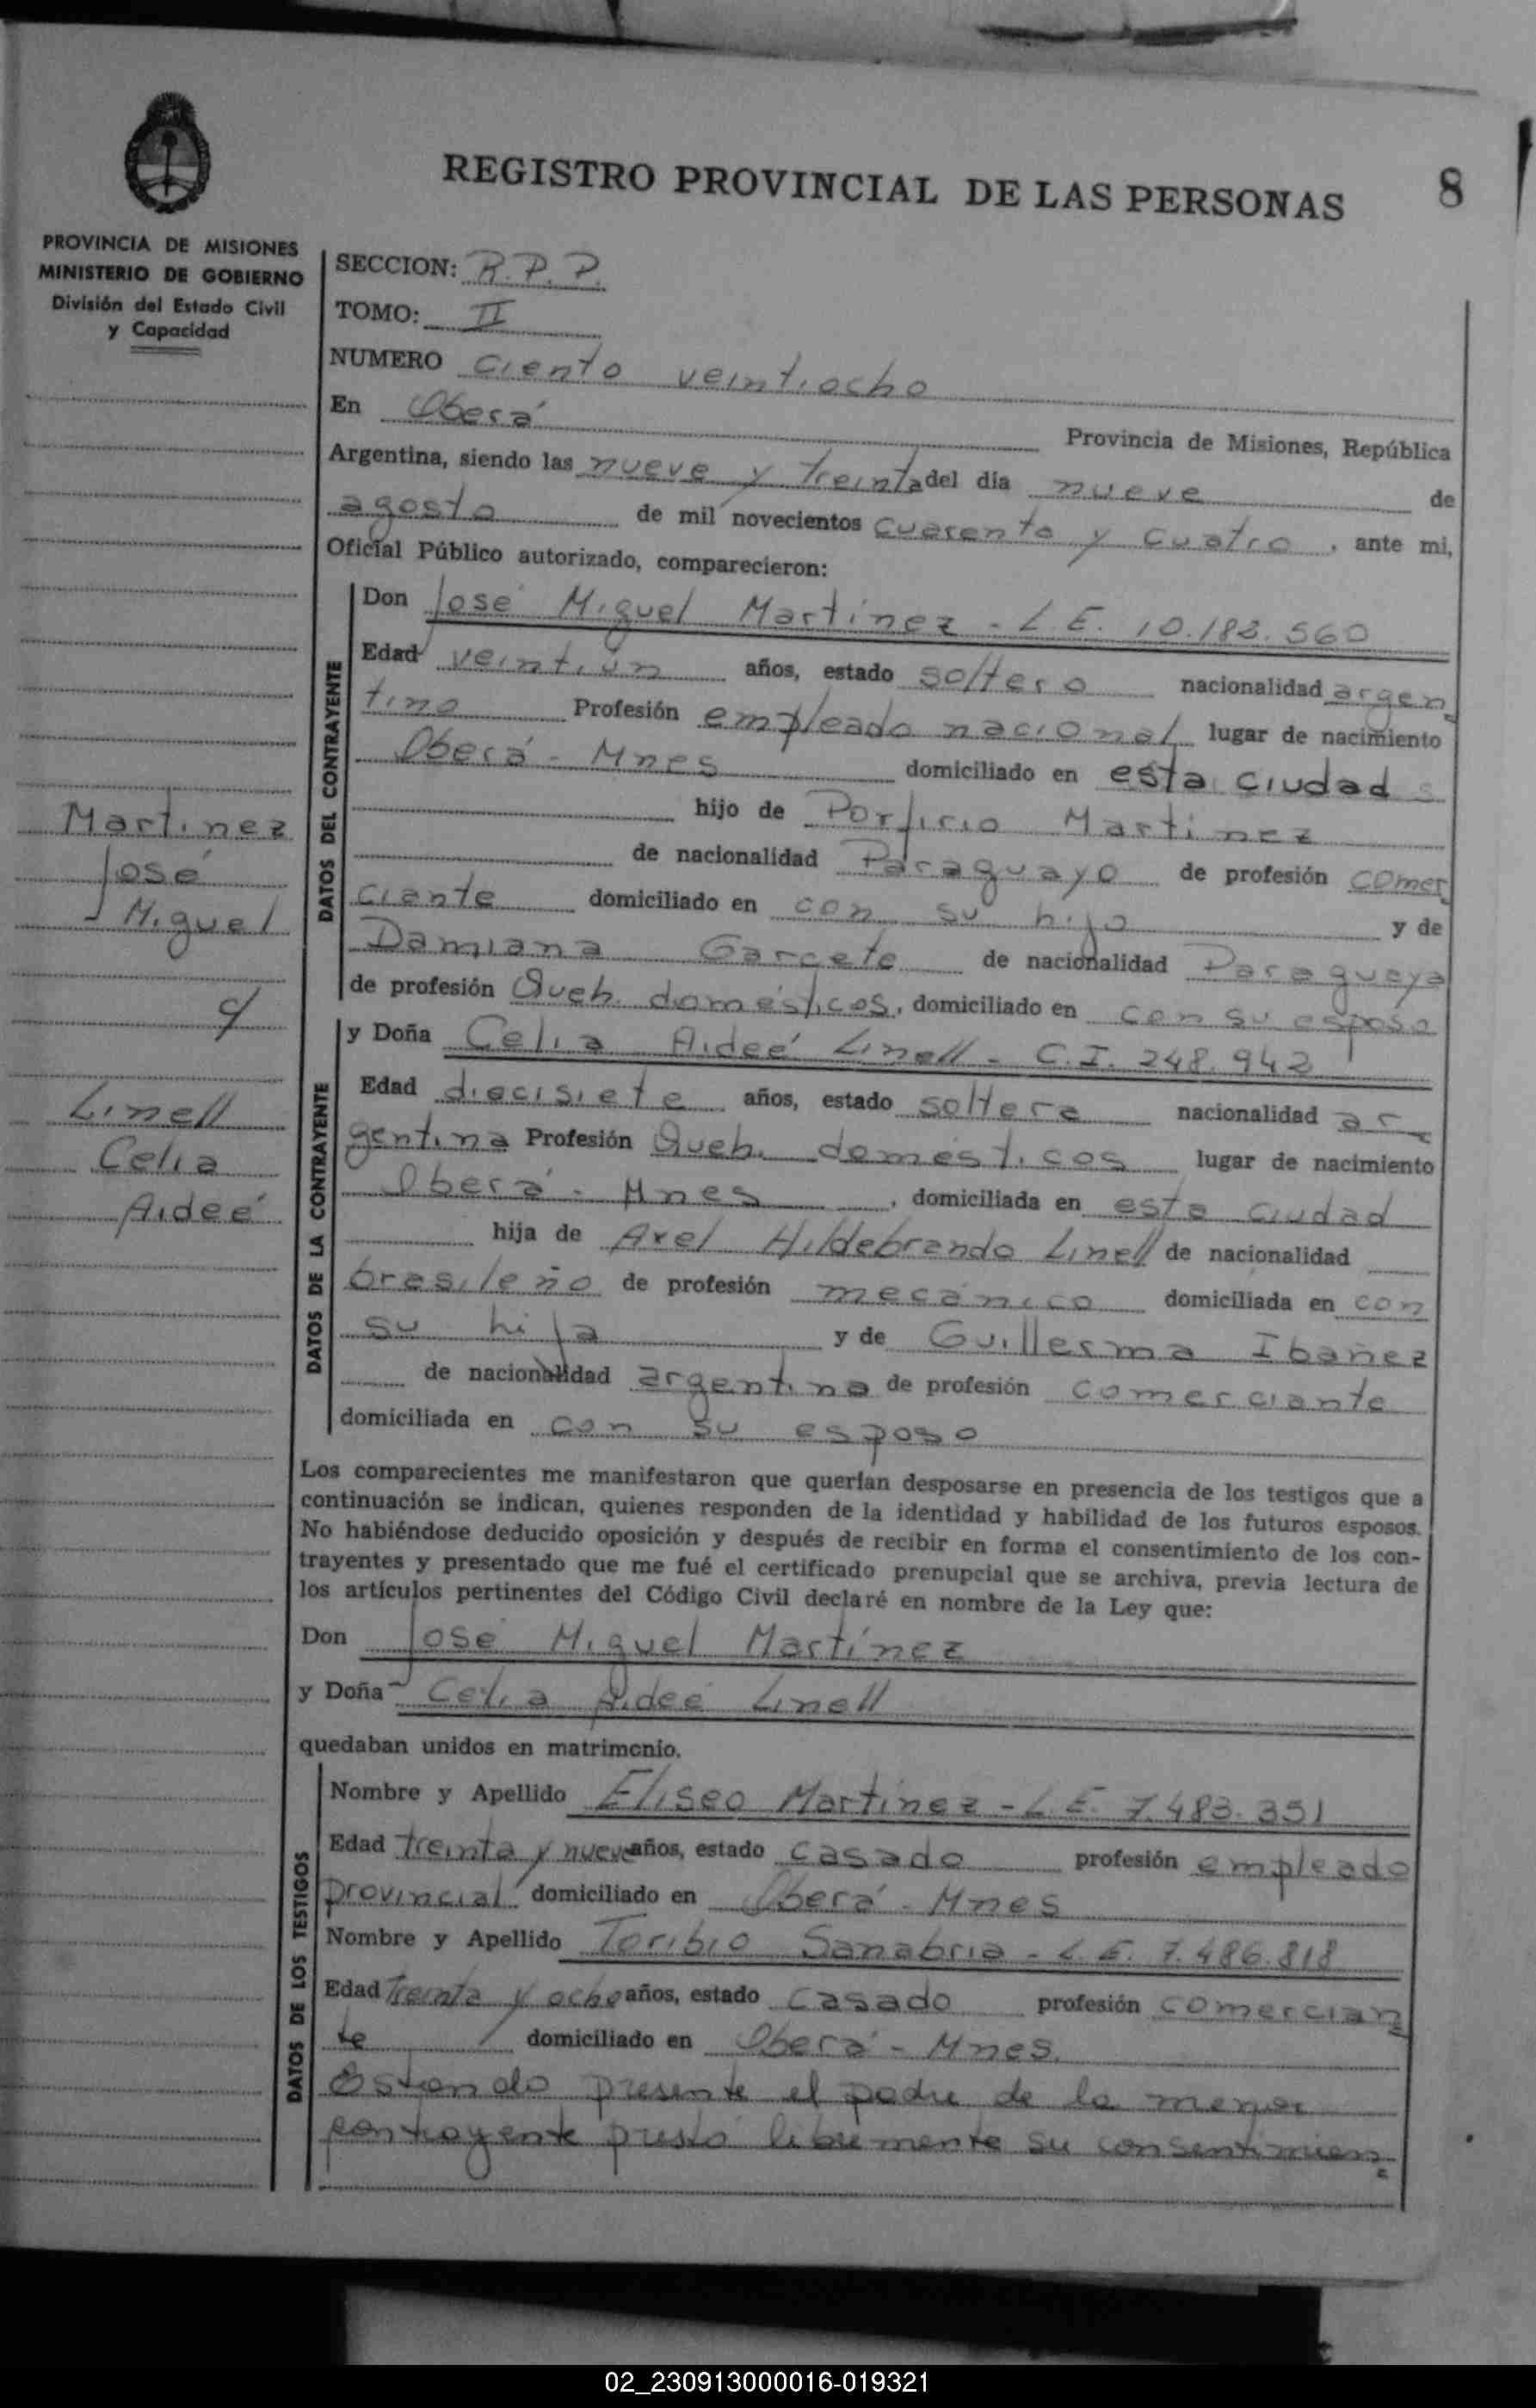 REGISTRO PROVINCIAL DE LAS PERSONAS 8
PROVINCIA DE MISIONES
MINISTERIO DE GOBIERNO
División del Estado Civil
y Capacidad
SECCION: R.P.P.
TOMO: II
NUMERO ciento veintiocho
En Oberá Provincia de Misiones, República
Argentina, siendo las nueve y treinta del día nueve de
agosto de mil novecientos cuarenta y cuatro, ante mi,
Oficial Público autorizado, comparecieron:
DATOS DEL CONTRAYENTE
Don José Miguel Martínez - L.E. 10.182.560
Edad veintiun años, estado soltero nacionalidad argen
tino Profesión empleado nacional lugar de nacimiento
Oberá - Mnes domiciliado en esta ciudad
hijo de Porfirio Martínez
de nacionalidad Paraguayo de profesión comer
ciante domiciliado en con su hijo y de
Damiana Garcete de nacionalidad Paraguaya
de profesión Queh. domésticos, domiciliado en con su esposo
Martínez
José
Miguel
c/
Linell
Celia
Aideé
DATOS DE LA CONTRAYENTE
y Doña Celia Aideé Linell - C.I. 248.942
Edad diecisiete años, estado soltera nacionalidad ar
gentina Profesión Queh. domésticos lugar de nacimiento
Oberá - Mnes, domiciliada en esta ciudad
hija de Axel Hildebrando Linell de nacionalidad
brasileño de profesión mecánico domiciliada en con
su hija y de Guillerma Ibañez
de nacionalidad argentina de profesión comerciante
domiciliada en con su esposo
Los comparecientes me manifestaron que querían desposarse en presencia de los testigos que a
continuación se indican, quienes responden de la identidad y habilidad de los futuros esposos.
No habiéndose deducido oposición y después de recibir en forma el consentimiento de los con-
trayentes y presentado que me fué el certificado prenupcial que se archiva, previa lectura de
los artículos pertinentes del Código Civil declaré en nombre de la Ley que:
Don José Miguel Martínez
y Doña Celia Aideé Linell
quedaban unidos en matrimonio.
DATOS DE LOS TESTIGOS
Nombre y Apellido Eliseo Martínez - L.E. 7.483.351
Edad treinta y nueve años, estado casado profesión empleado
provincial domiciliado en Oberá - Mnes
Nombre y Apellido Toribio Sanabria - L.E. 7.486.818
Edad treinta y ocho años, estado casado profesión comercian
te domiciliado en Oberá - Mnes.
Estando presente el padre de la menor
contrayente prestó libremente su consentimien
02_230913000016-019321